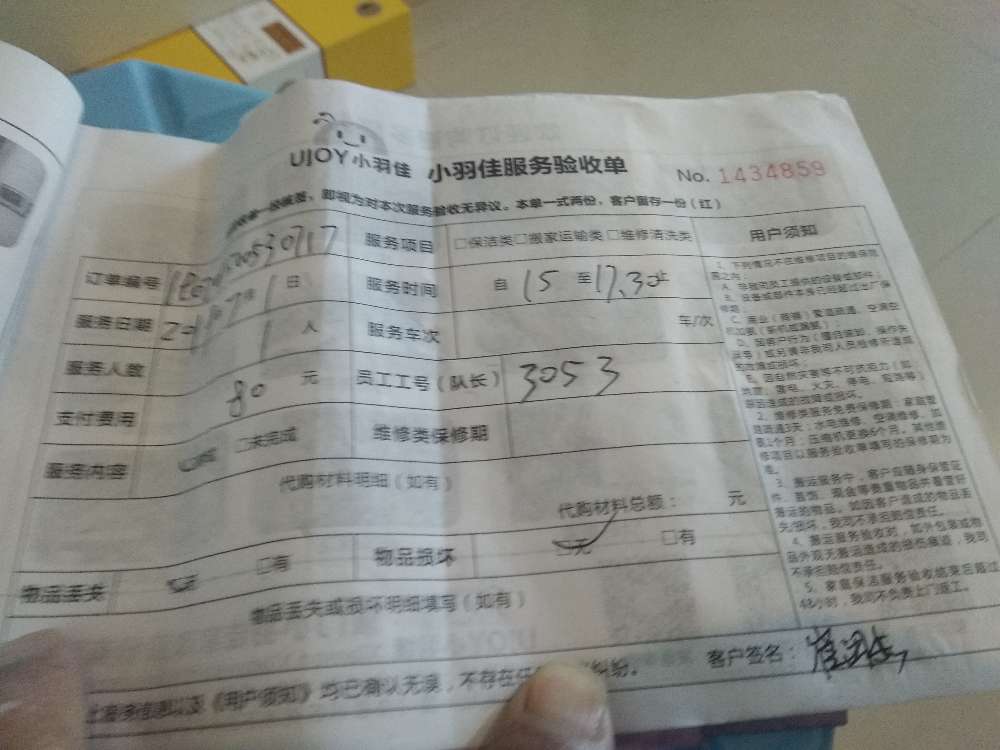 UJOY小羽佳 小羽佳服务验收单 No. 1434859
即视为对本次服务验收无异议。本单一式两份，客户留存一份（红）
订单编号 服务项目 □保洁类□搬家运输类□维修清洗类 用户须知
服务日期 7月1日 服务时间 自15至17.30止
服务人数 1人 服务车次 车/次
支付费用 80元 员工工号（队长） 3053
服务内容 □未完成 维修类保修期
代购材料明细（如有）
代购材料总额： 元
物品丢失 □无 □有 物品损坏 □无 □有
物品丢失或损坏明细填写（如有）
《用户须知》均已确认无误，不存在任 纠纷。 客户签名：
1、下列情况不在维修项目的维保范
围之内：
A、非我司员工提供的设备或部件；
B、设备或部件本身已经超过出厂保
修期；
D、因客户行为（擅自拆卸、操作失
误等）或另请非我司人员检修所造成
的故障或损坏。
E、因自然灾害等不可抗拒力（如
地震、雷电、火灾、停电、短路等）
原因造成的故障或损坏。
2、维修类服务免费保修期：家庭管
道疏通3天；水电维修、空调维修、加
氟1个月；压缩机更换6个月。其他维
修项目以服务验收单填写的保修期为
准。
3、搬运服务中，客户应随身保管证
件、首饰、现金等贵重物品并看管好
搬运的物品。如因客户造成的物品丢
失/损坏，我司不承担赔偿责任。
4、搬运服务验收时，如外包装或物
品外观无搬运造成的损伤痕迹，我司
不承担赔偿责任。
5、家庭保洁服务验收结束后超过
48小时，我司不负责上门返工。